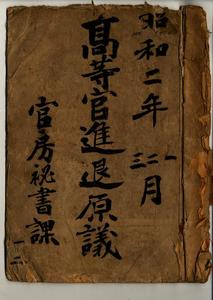 昭和二年
月
高等官進退原議
官房祕書課